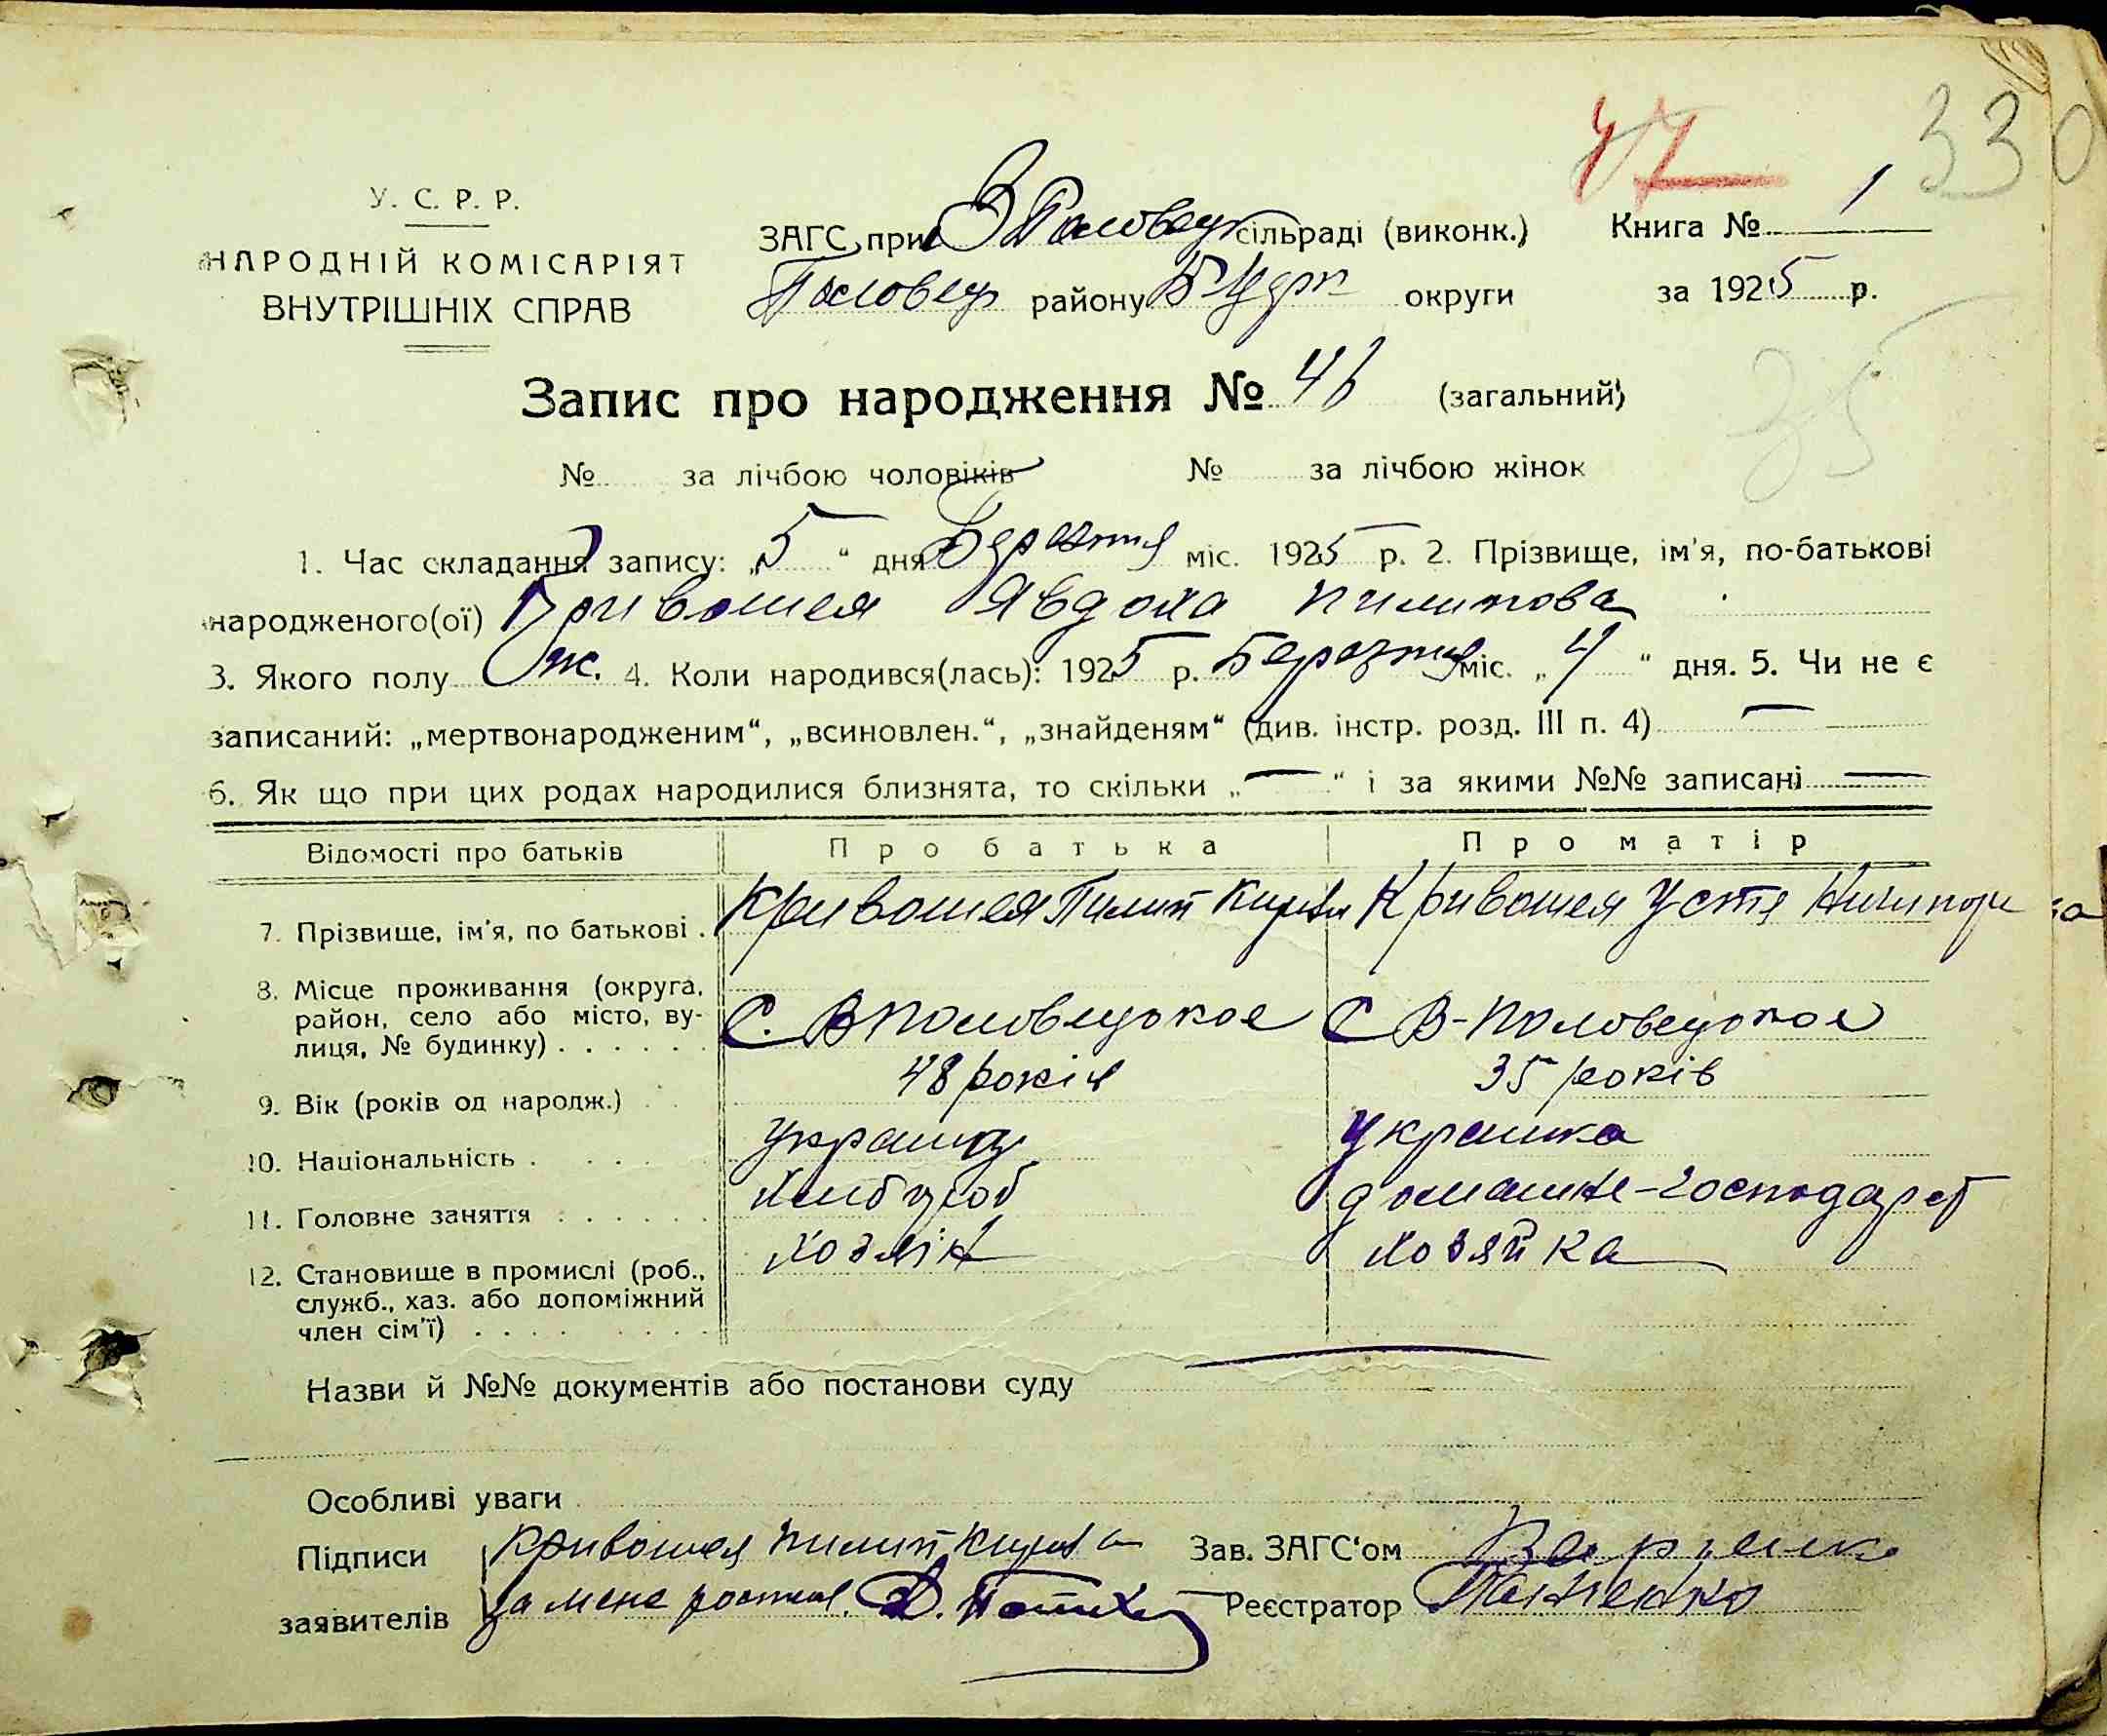 47 330
У. С. Р. Р.
НАРОДНІЙ КОМІСАРІЯТ
ВНУТРІШНІХ СПРАВ
ЗАГС при В Половец сільраді (виконк.)
Половец району Б Церк округи
Книга № 1
за 1925 р.
Запис про народження № 46 (загальний)
35
№ за лічбою чоловіків № за лічбою жінок
1. Час складання запису: „5“ дня Березня міс. 1925 р. 2. Прізвище, ім'я, по-батькові
народженого(ої) Кривошея Явдоха Пилипова
3. Якого полу ж. 4. Коли народився(лась): 1925 р. Березня міс. „4“ дня. 5. Чи не є
записаний: „мертвонародженим“, „всиновлен.“, „знайденям“ (див. інстр. розд. III п. 4) —
6. Як що при цих родах народилися близнята, то скільки „—“ і за якими №№ записані —
Відомості про батьків Про батька Про матір
7. Прізвище, ім'я, по батькові . Кривошея Пилип Кирил Кривошея Устя Ничипорова
8. Місце проживання (округа, район, село або місто, вулиця, № будинку) . . . . . . С. В Половецкое С В-Половецкое
9. Вік (років од народж.) 48 років 35 років
10. Національність . . . . Українц Українка
11. Головне заняття . . . . . . Хлібороб домашнє-господарст
12. Становище в промислі (роб., служб., хаз. або допоміжний член сім'ї) . . . . Хозяін Хозяйка
Назви й №№ документів або постанови суду
Особливі уваги
Підписи Кривошея Пилип Зав. ЗАГС'ом
заявителів за мене роспис. Реєстратор